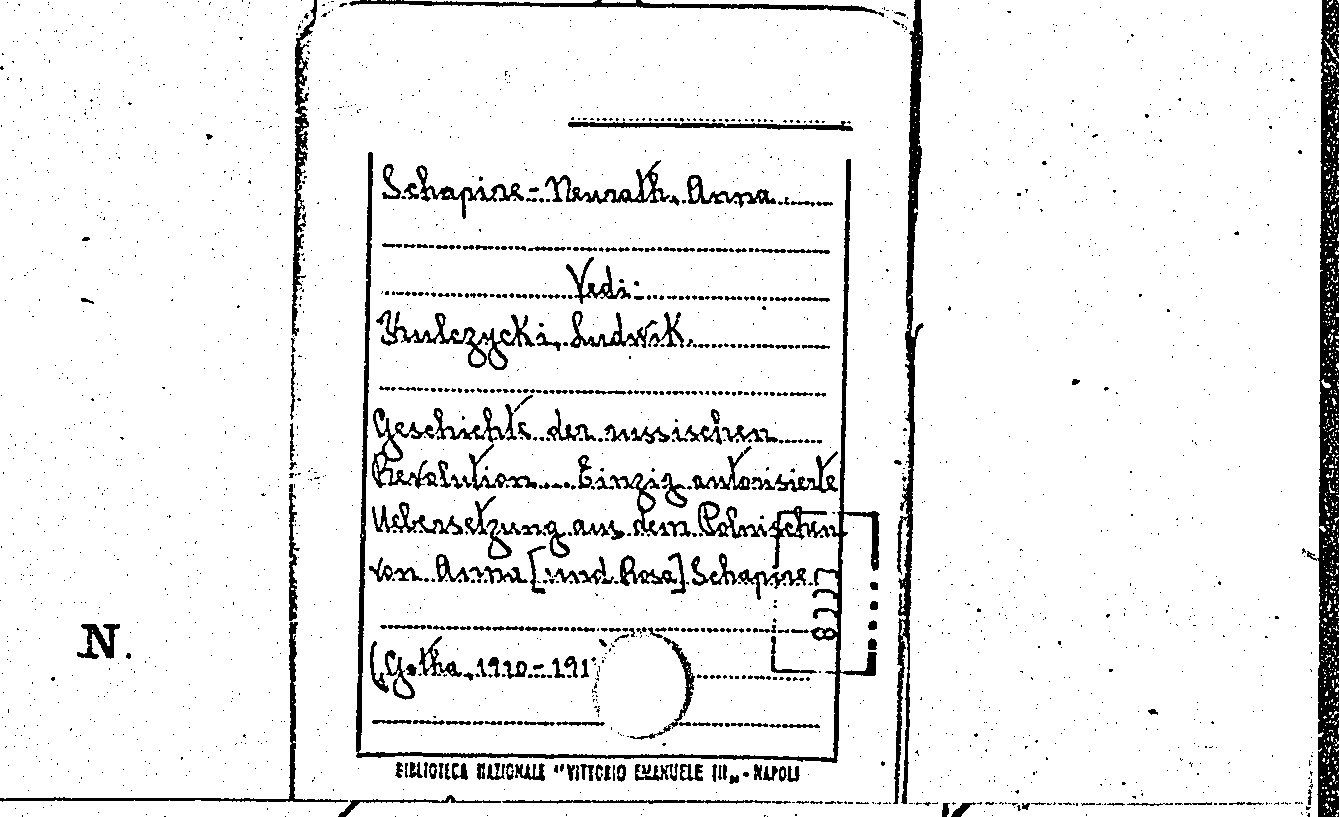 Schapire-Neurath, Anna
Vedi:
Kulczycki, Ludwik.
Geschichte der russischen
Revolution... Einzig autorisierte
Uebersetzung aus dem Polnischen
von Anna [und Rosa] Schapire.
(Gotha, 1910-191
N.
BIBLIOTECA NAZIONALE "VITTORIO EMANUELE III„ - NAPOLI